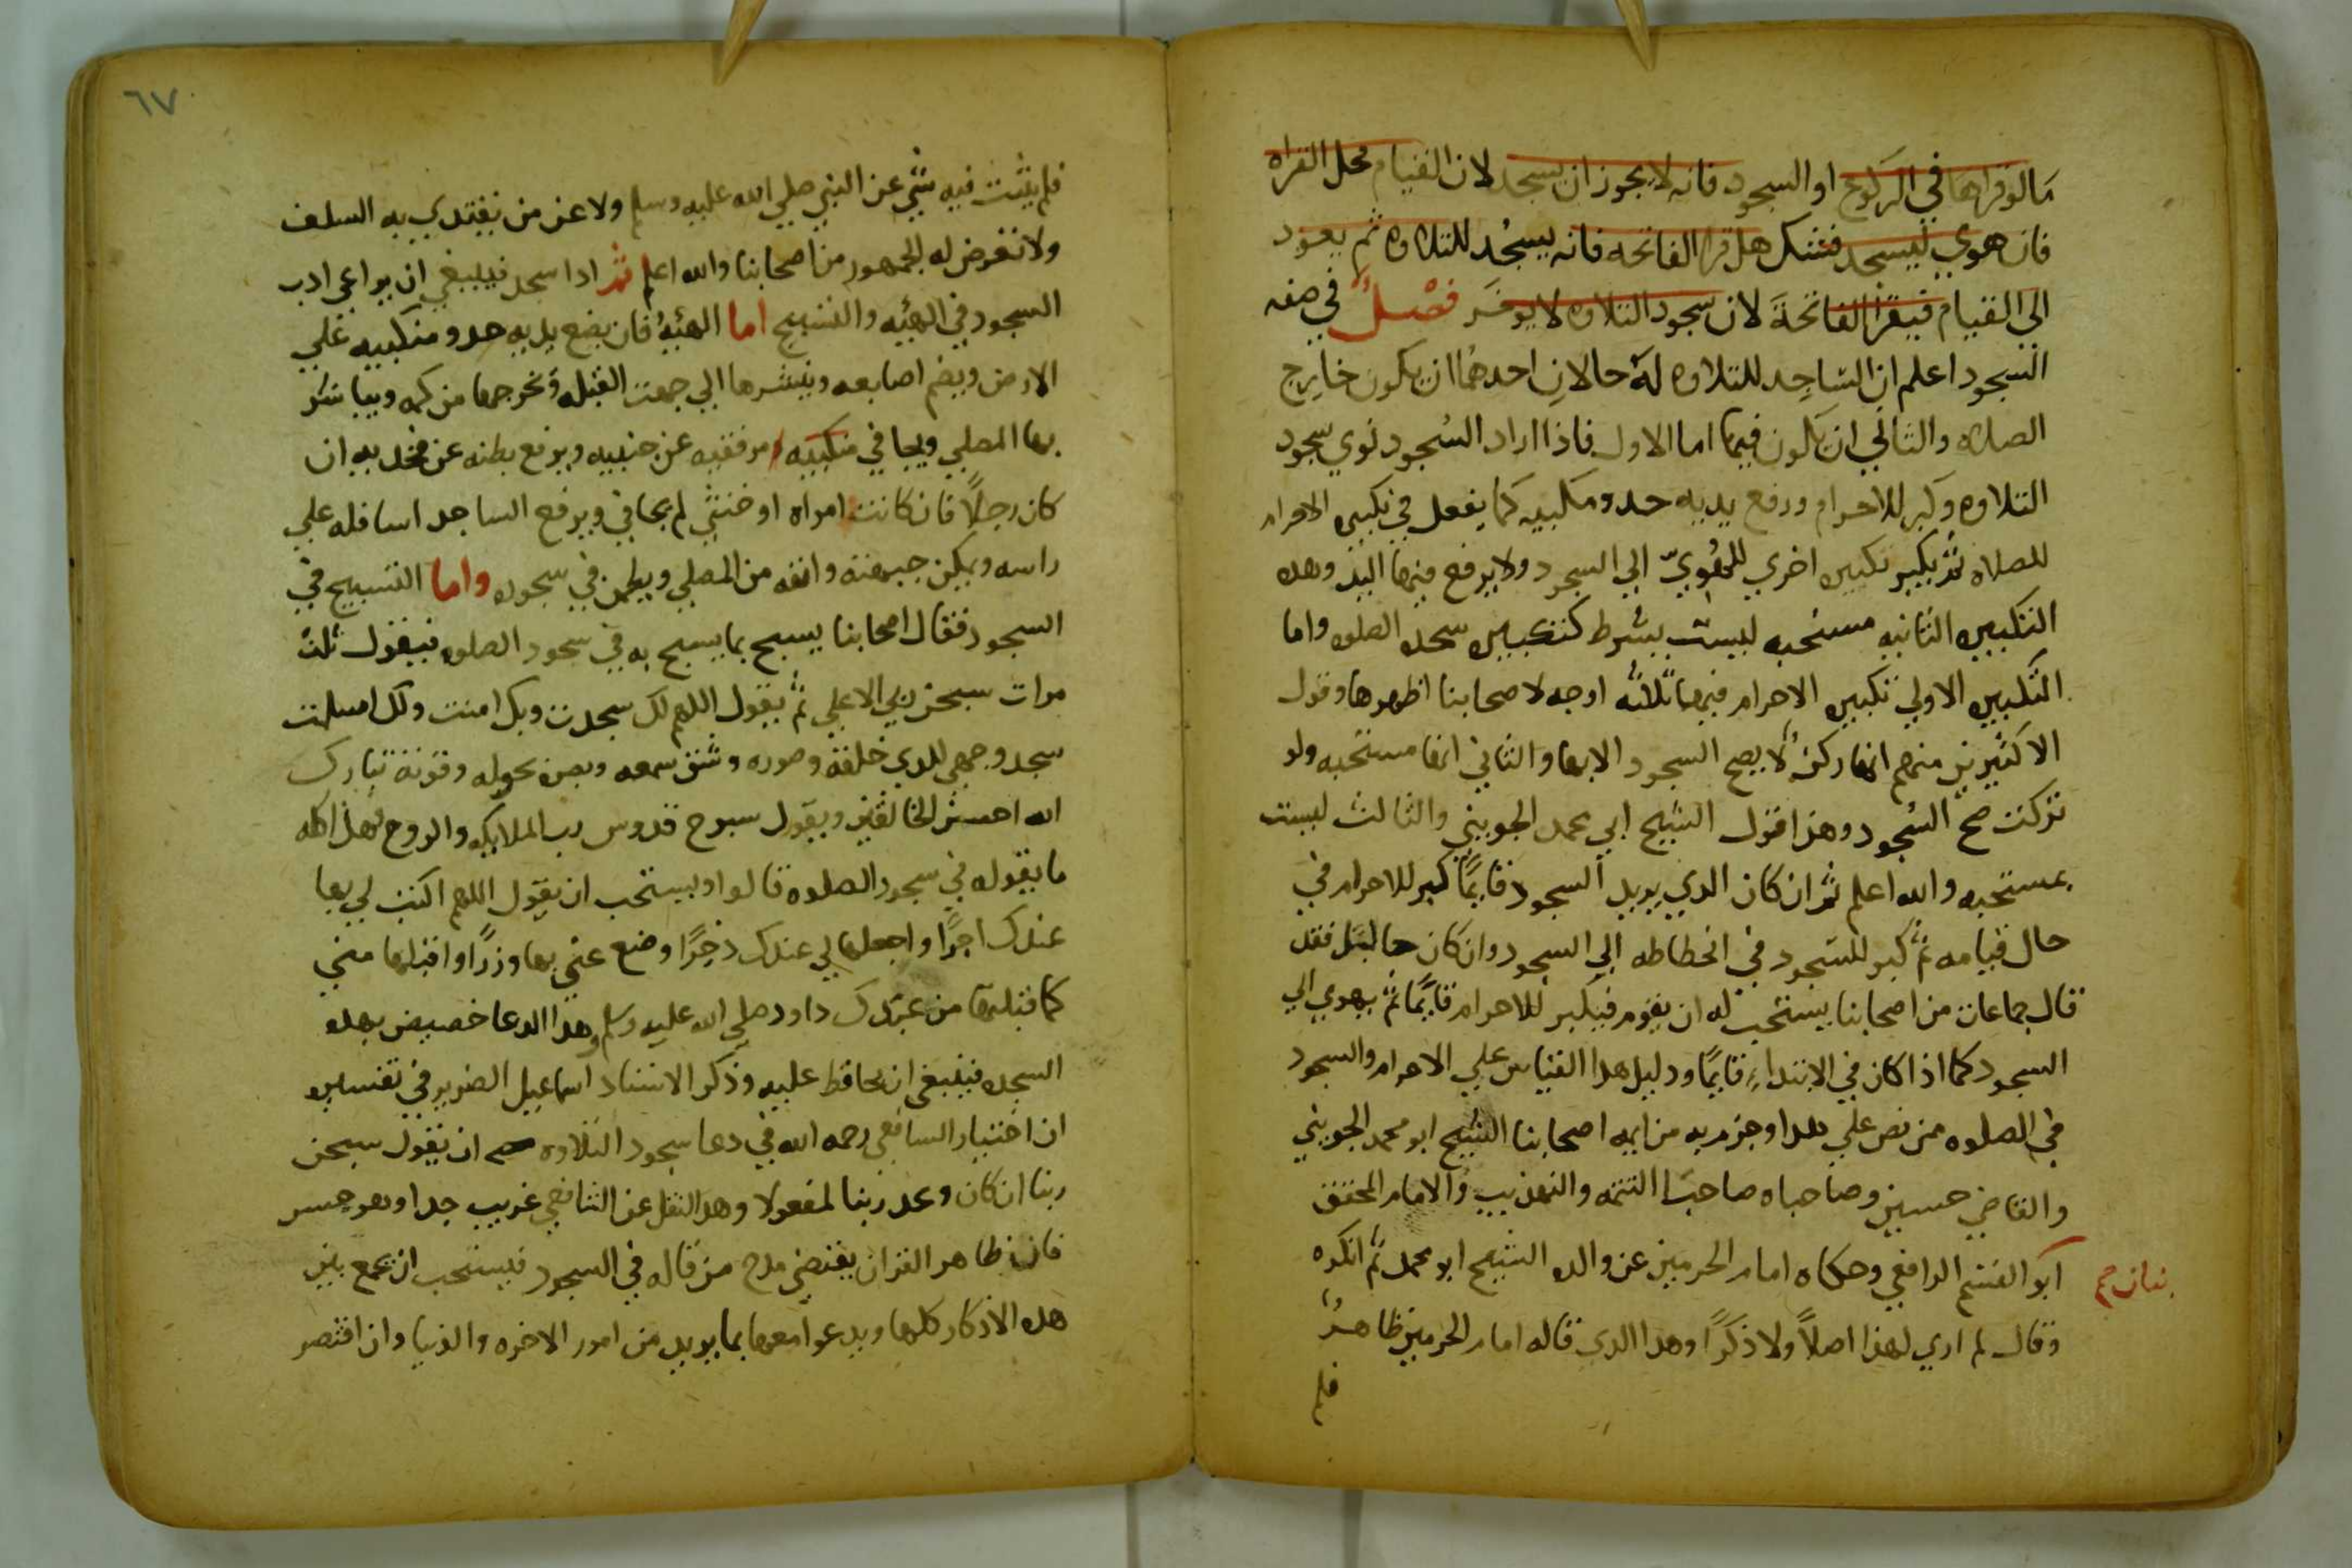 مالو قراها في الركوع او السجود فانه لا يجوز ان يسجد لان القيام محل القراه
فان هوي ليسجد فشك هل قرا الفاتحه فانه يسجد للتلاوه ثم يعود
الي القيام فيقرا الفاتحة لان سجود التلاوه لا يوخر فصل في صفه
السجود اعلم ان الساجد للتلاوه له حالان احدهما ان يكون خارج
الصلاه والثاني ان يكون فيها اما الاول فاذا اراد السجود نوي سجود
التلاوه وكبر للاحرام ورفع يديه حدو منكبيه كما يفعل في تكبيره الاحرام
للصلاه ثم يكبر تكبيره اخري للهوي الي السجود ولا يرفع فيها اليد وهده
التكبيره الثانيه مستحبه ليست بشرط كتكبيره سجده الصلوه واما
التكبيره الاولي تكبيره الاحرام فيها ثلاثه اوجه لاصحابنا اظهرها وقول
الاكثرين منهم انها ركن لا يصح السجود الابها والثاني انها مستحبه ولو
تركت صح السجود وهذا قول الشيخ ابي محمد الجويني والثالث ليست
بمستحبه والله اعلم ثم ان كان الدي يريد السجود قايما كبر للاحرام في
حال قيامه ثم كبر للسجود في انحطاطه الي السجود وان كان جالسا فقد
قال جماعات من اصحابنا يستحب له ان يقوم فيكبر للاحرام قايما ثم يهوي الي
السجود كما اذا كان في الابتداء قايما ودليل هدا القياس علي الاحرام والسجود
في الصلوه ممن نص علي هدا وجزم به من ايمه اصحابنا الشيخ ابو محمد الجويني
والقاضي حسين وصاحباه صاحبا التتمه والتهذيب والامام المحقق
ابو القسم الرافعي وحكاه امام الحرمين عن والده الشيخ ابو محمد ثم انكره
وقال لم اري لهذا اصلا ولا ذكرا وهدا الدي قاله امام الحرمين ظاهر
فلم
٦٧
فلم يثبت فيه شي عن النبي صلي الله عليه وسلم ولا عن من يقتدي به السلف
ولا تعرض له الجمهور من اصحابنا والله اعلم ثم ادا سجد فينبغي ان يراعي ادب
السجود في الهئيه والتسبيح اما الهئيه فان يضع يديه حدو منكبيه علي
الارض ويضم اصابعه وينشرها الي جهت القبله ويخرجها من كمه ويباشر
بها المصلي ويجافي منكبيه مرفقيه عن جنبيه ويرفع بطنه عن فخديه ان
كان رجلا فان كانت امراه او خنثي لم يجافي ويرفع الساجد اسافله علي
راسه ويمكن جبهته وانفه من المصلي ويطمن في سجوده واما التسبيح في
السجود فقال اصحابنا يسبح بما يسبح به في سجود الصلوه فيقول ثلث
مرات سبحن ربي الاعلي ثم يقول اللهم لك سجدت وبك امنت ولك اسلمت
سجد وجهي للدي خلقه وصوره وشق سمعه وبصره بحوله وقوته تبارك
الله احسن الخالقين ويقول سبوح قدوس رب الملايكه والروح فهذا كله
ما يقوله في سجود الصلوه قالوا ويستحب ان يقول اللهم اكتب لي بها
عندك اجرا واجعلها لي عندك ذخرا وضع عني بها وزرا واقبلها مني
كما قبلتها من عبدك داود صلي الله عليه وسلم وهدا الدعا خصيص بهده
السجده فينبغي ان يحافظ عليه وذكر الاستاد اسماعيل الضرير في تفسيره
ان اختيار السافعي رحمه الله في دعا سجود التلاوه ان يقول سبحن
ربنا ان كان وعد ربنا لمفعولا وهدا النقل عن الشافعي غريب جدا وهو حسن
فان ظاهر القران يقتضي مدح من قاله في السجود فيستحب ان يجمع بين
هده الاذكار كلها ويدعوا معها بما يريد من امور الاخره والدنيا وان اقتصر